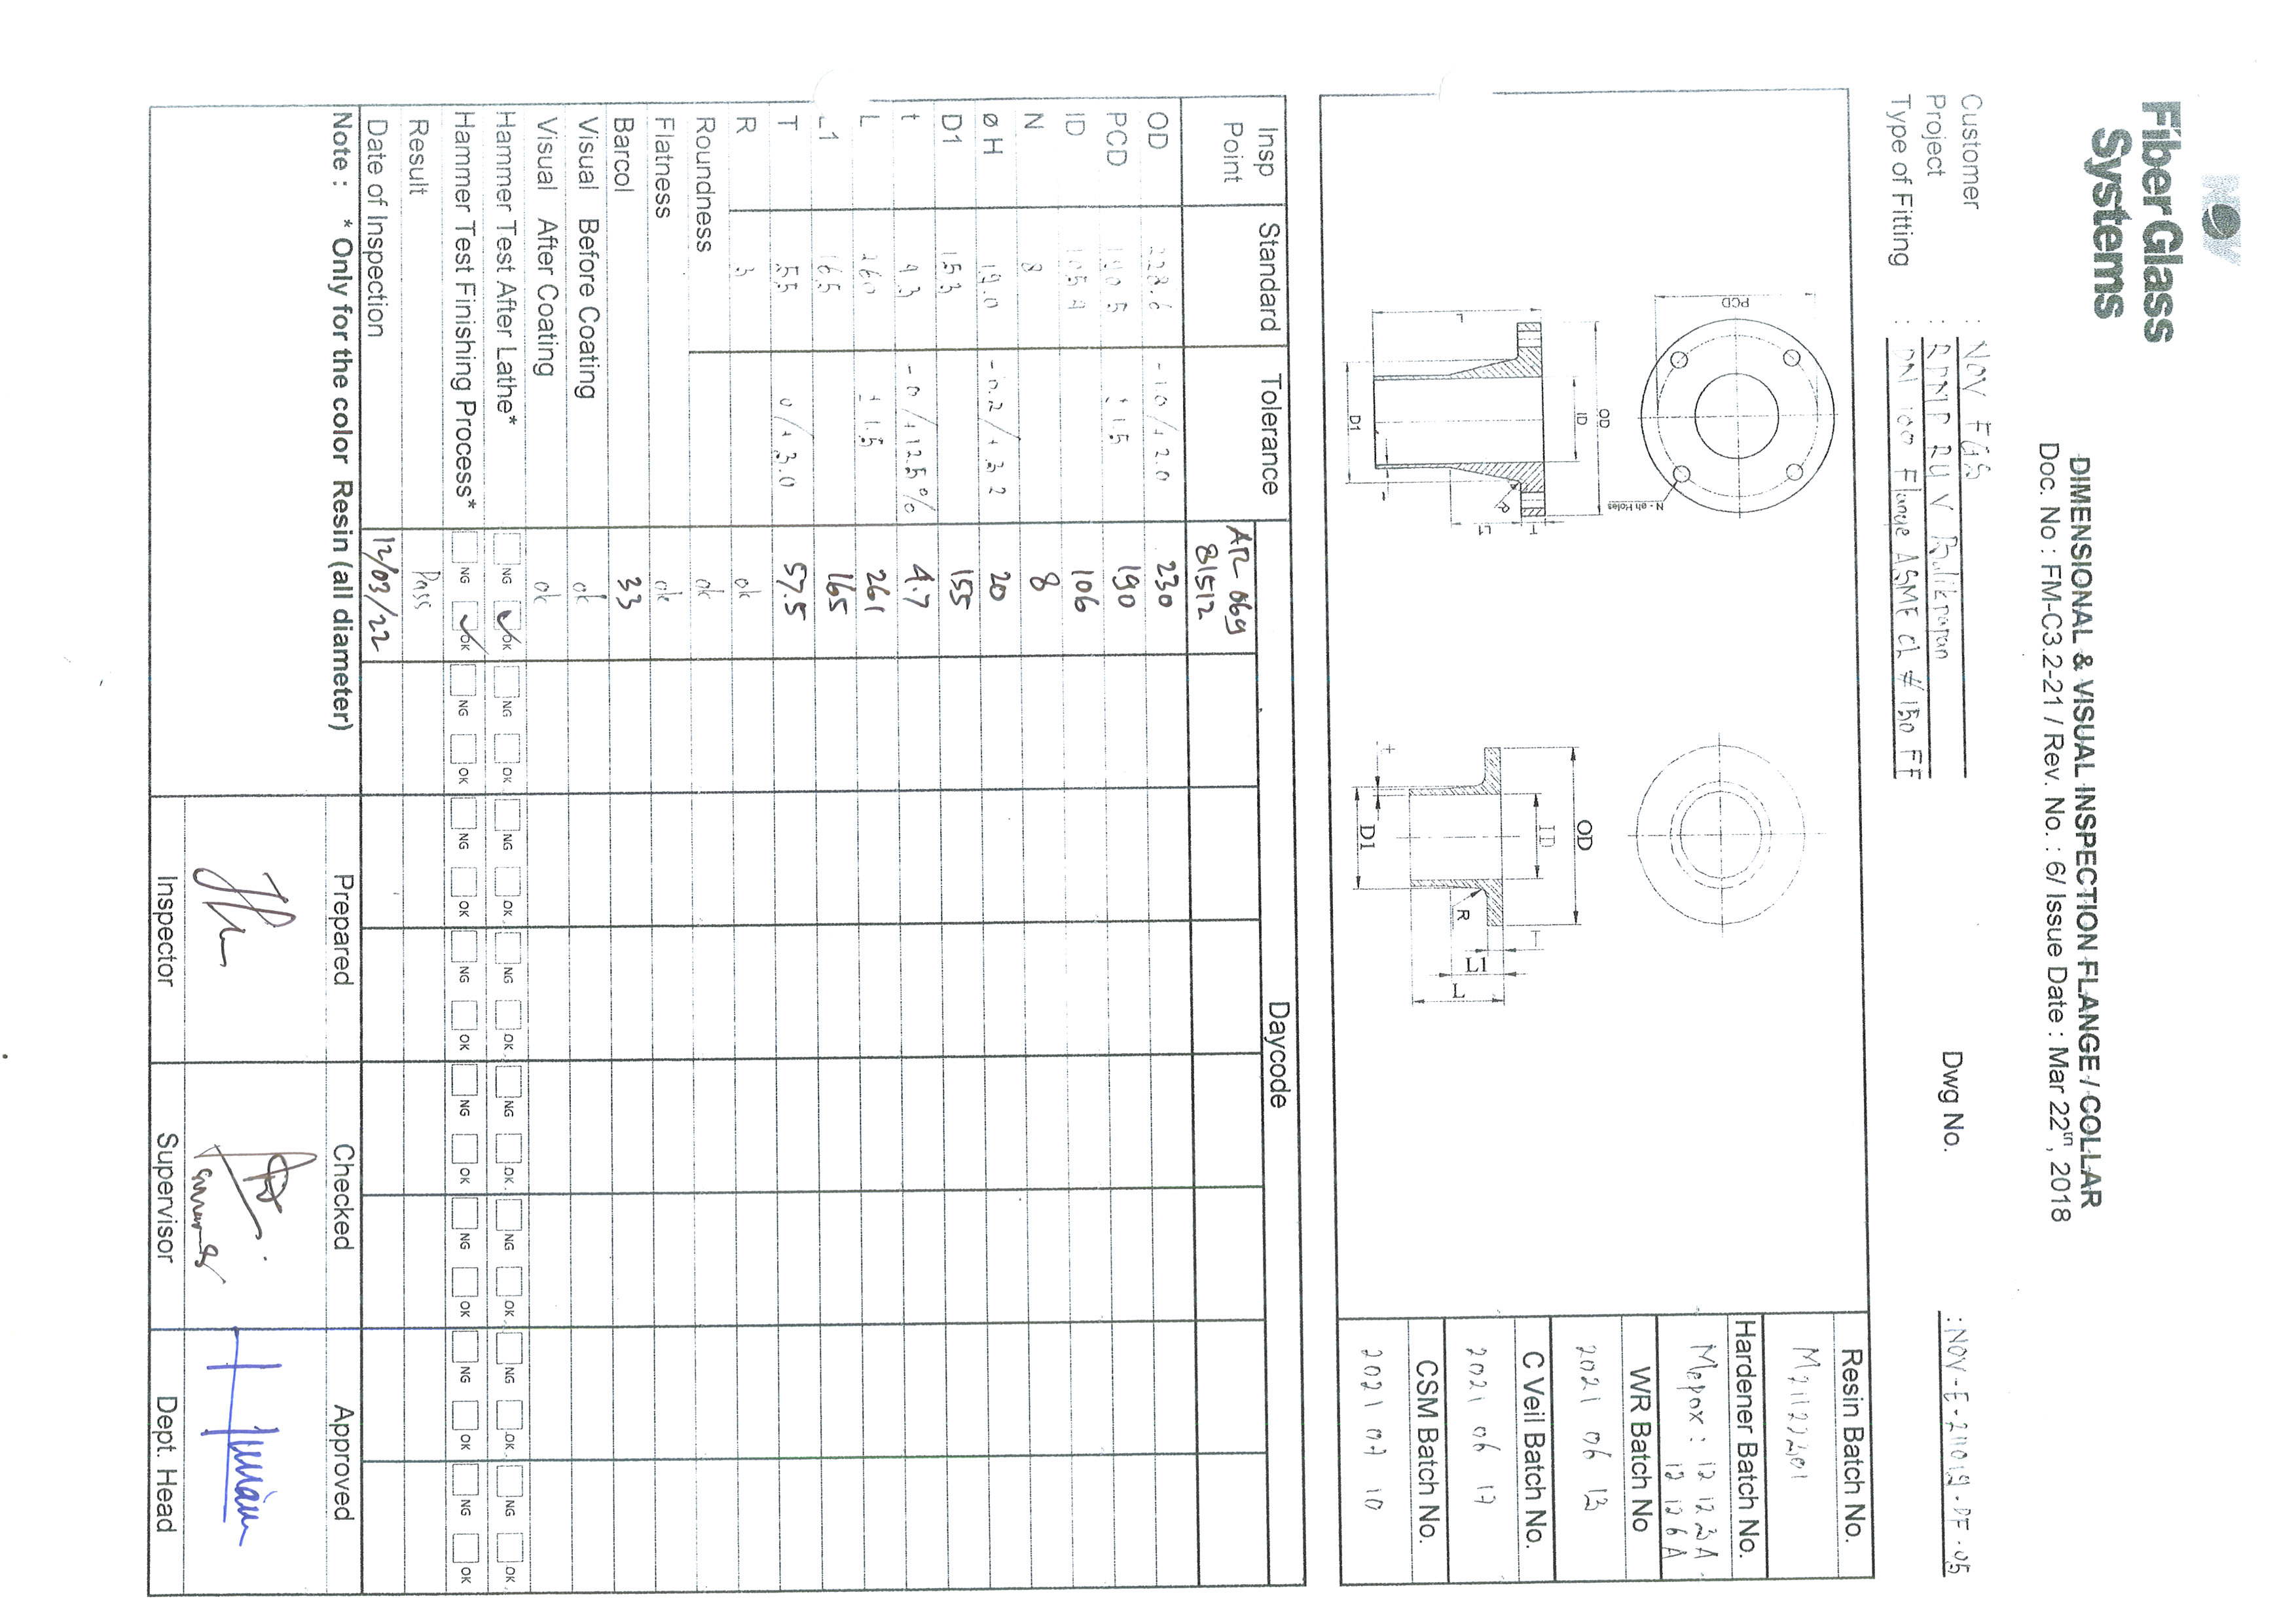 NOV
FiberGlass
Systems
DIMENSIONAL & VISUAL INSPECTION FLANGE / COLLAR
Doc. No : FM-C3.2-21 / Rev. No. : 6/ Issue Date : Mar 22th, 2018
Customer : NOV FGS
Project : RDMP RU V Balikpapan
Dwg No. : NOV-E-21019-DF-05
Type of Fitting : DN 100 Flange ASME CL # 150 FF
PCD
N - øh Holes
OD
ID
L
D1
R
T
L1
OD
ID
D1
R
T
L1
L
Resin Batch No.
Hardener Batch No.
Mepox : 12 123A
12 126A
WR Batch No
2021 06 13
C Veil Batch No.
2021 06 17
CSM Batch No.
2021 07 10
Insp Point Standard Tolerance Daycode
AR-069
81512
OD 228.6 -1.0/+2.0 230
PCD 190.5 ±1.5 190
ID 105.9 106
N 8 8
Ø H 19.0 -0.2/+3.2 20
D1 153 155
t 4.3 -0/+12.5% 4.7
L 260 ±1.5 261
L1 165 165
T 55 0/+3.0 57.5
R 3 ok
Roundness ok
Flatness ok
Barcol 33
Visual Before Coating ok
Visual After Coating ok
Hammer Test After Lathe* NG OK NG OK NG OK NG OK NG OK NG OK NG OK NG OK
Hammer Test Finishing Process* NG OK NG OK NG OK NG OK NG OK NG OK NG OK NG OK
Result Pass
Date of Inspection 12/03/22
Note : * Only for the color Resin (all diameter)
Prepared Checked Approved
Inspector Supervisor Dept. Head